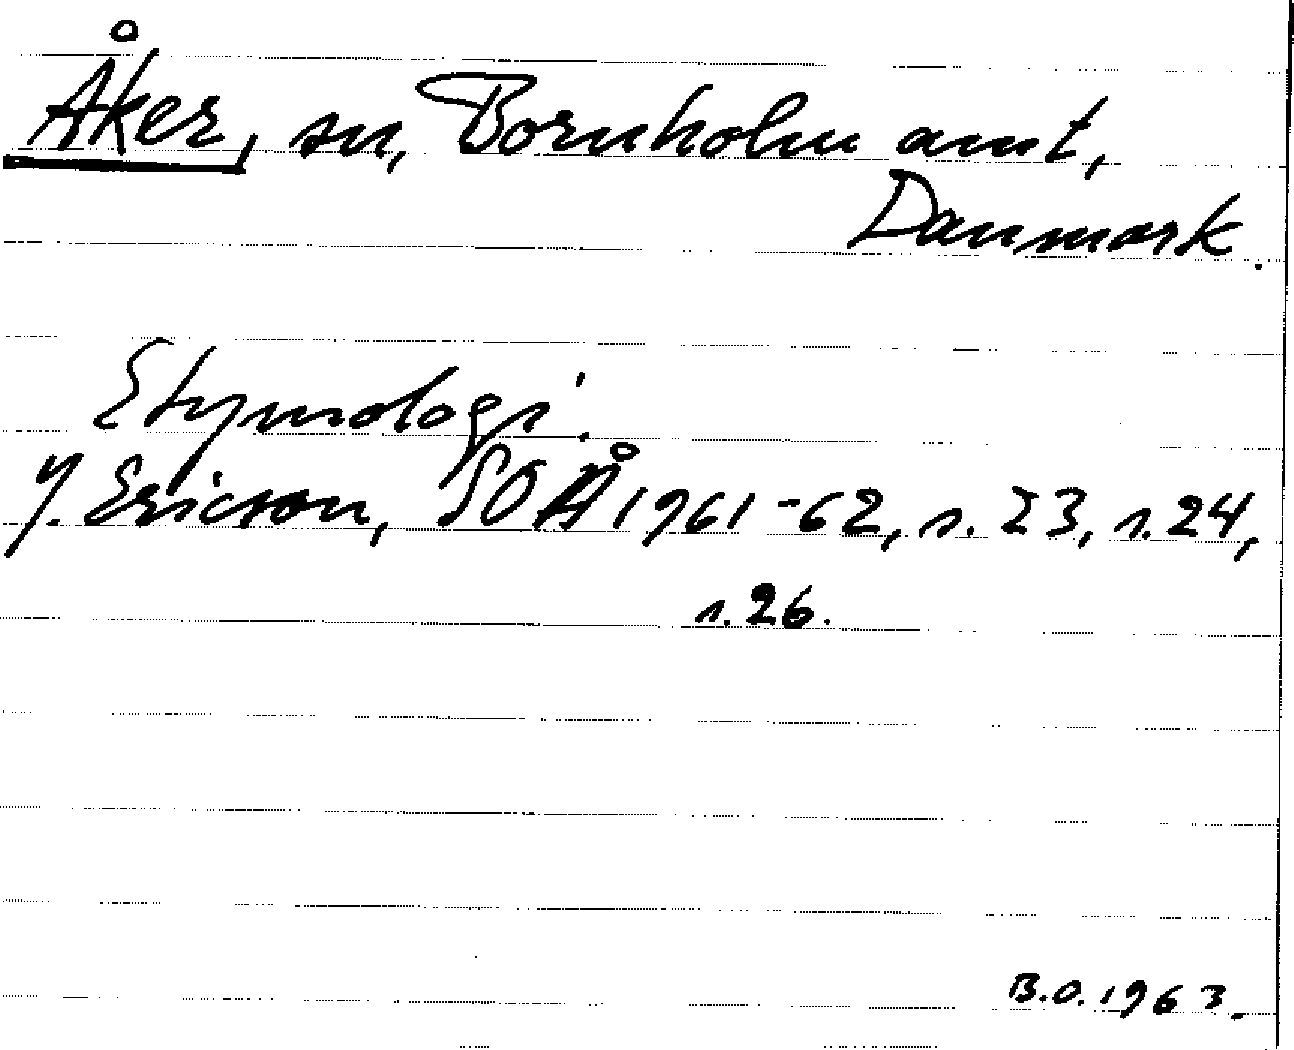 Åker, sn, Bornholm amt,
Danmark.
Etymologi.
Y. Ericson, SOÅ 1961-62, s. 23, s. 24,
s. 26.
B.O. 1963.